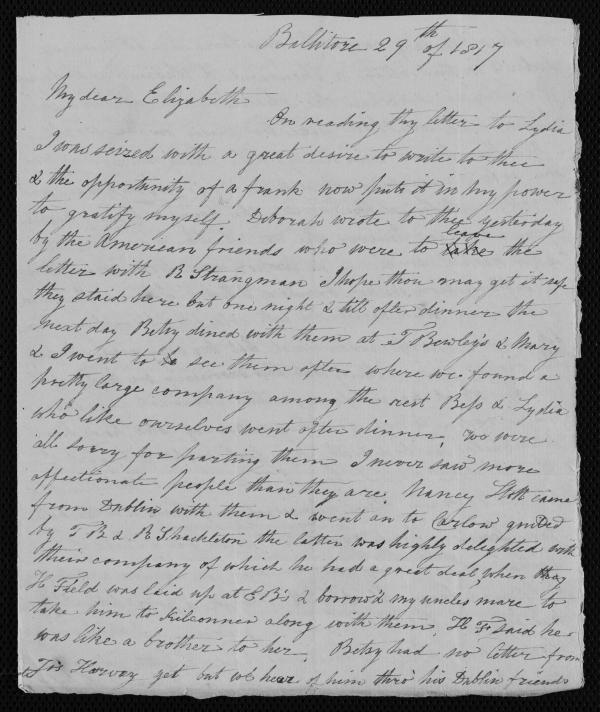 Ballitore 29th of 1817
My dear Elizabeth
On reading thy letter to Lydia
I was seized with a great desire to write to thee
& the opportunity of a frank now puts it in my power
to gratify myself. Deborah wrote to thee yesterday
by the American friends who were to leave the
letter with R Strangman I hope thou may get it safe
they staid here but one night & till after dinner the
next day Betsy dined with them at T Bewley's & Mary
& I went to see them after where we found a
pretty large company among the rest Bess & Lydia
who like ourselves went after dinner, we were
all sorry for parting them I never saw more
affectionate people than they are. Nancy came
from Dublin with them & went on to Carlow guided
by T B & R Shackleton the latter was highly delighted with
their company of which he had a great deal, when they
H Field was laid up at E B's & borrow'd my uncles mare to
take him to Kilconner along with them. H F said he
was like a brother to her. Betsy had no letter from
Harvey yet but we hear of him thro' his Dublin friends